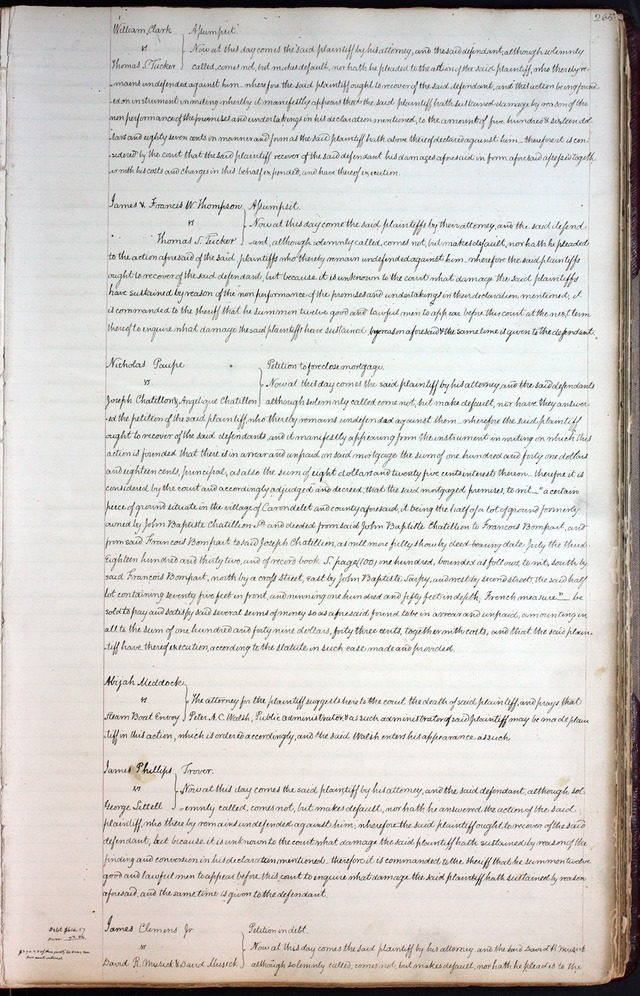 265
William Clark } Assumpsit.
vs Now at this day comes the said plaintiff by his attorney, and the said defendant, although solemnly
Thomas S. Tucker called, comes not, but makes default, nor hath he pleaded to the action of the said plaintiff, who thereby re-
-mains undefended against him, wherefore the said plaintiff ought to recover of the said defendant, and this action being found
ed on instrument in writing whereby it manifestly appears that the said plaintiff hath sustained damage by reason of the
non performance of the promises and undertakings in his declaration mentioned, to the amount of five hundred & sixteen dol
lars and eighty seven cents in manner and form as the said plaintiff hath above thereof declared against him, therefore it is con-
sidered by the court that the said plaintiff recover of the said defendant his damages aforesaid in form aforesaid assessed togeth
er with his costs and charges in this behalf expended, and have thereof execution.
James & Francis W. Thompson } Assumpsit.
vs Now at this day come the said plaintiffs by their attorney, and the said defend
Thomas S. Tucker ant, although solemnly called, comes not, but makes default, nor hath he pleaded
to the action aforesaid of the said plaintiffs who thereby remain undefended against him, wherefore the said plaintiffs
ought to recover of the said defendant, but because it is unknown to the court what damage the said plaintiffs
have sustained by reason of the non performance of the promises and undertakings in their declaration mentioned, it
is commanded to the sheriff that he summon twelve good and lawful men to appear before this court at the next term
thereof to enquire what damage the said plaintiffs have sustained by reason aforesaid & the same time is given to the defendant.
Nicholas Paupe } Petition to foreclose mortgage.
vs Now at this day comes the said plaintiff by his attorney and the said defendants
Joseph Chatillon & Angelique Chatillon although solemnly called come not, but make default, nor have they answer-
ed the petition of the said plaintiff, who thereby remains undefended against them, wherefore the said plaintiff
ought to recover of the said defendants, and it manifestly appearing from the instrument in writing on which this
action is founded that there is in arrear and unpaid on said mortgage the sum of one hundred and forty one dollars
and eighteen cents, principal, as also the sum of eight dollars and twenty five cents interest thereon. Therefore it is
considered by the court and accordingly adjudged and decreed, that the said mortgaged premises, to wit, "a certain
piece of ground situate in the village of Carondelet and county aforesaid, it being the half of a lot of ground formerly
owned by John Baptiste Chatillon Sr. and deeded from said John Baptiste Chatillon to Francois Bompart, and
from said Francois Bompart to said Joseph Chatillon, as will more fully show by deed bearing date July the third
Eighteen hundred and thirty two, and of record book S. page (100) one hundred, bounded as follows, to wit, south by
said Francois Bompart, north by a cross street, east by John Baptiste Sarpy, and west by second street, the said half
lot containing seventy five feet in front, and running one hundred and fifty feet in depth, French measure" be
sold to pay and satisfy said several sums of money so as aforesaid found to be in arrear and unpaid, amounting in
all to the sum of one hundred and forty nine dollars, forty three cents, together with costs, and that the said plain-
tiff have thereof execution, according to the statute in such case made and provided.
Abijah Meddock }
vs The attorney for the plaintiff suggests here to the court the death of said plaintiff, and prays that
Steam Boat Envoy Peter A. C. Walsh, Public administrator, & as such administrator of said plaintiff may be made plain
tiff in this action, which is ordered accordingly, and the said Walsh enters his appearance as such.
James Phillips } Trover.
vs Now at this day comes the said plaintiff by his attorney, and the said defendant, although sol
George Settell emnly called, comes not, but makes default, nor hath he answered the action of the said
plaintiff, who thereby remains undefended against him, wherefore the said plaintiff ought to recover of the said
defendant, but because it is unknown to the court what damage the said plaintiff hath sustained by reason of the
finding and conversion in his declaration mentioned. therefore it is commanded to the sheriff that he summon twelve
good and lawful men to appear before this court to enquire what damage the said plaintiff hath sustained by reason
aforesaid, and the same time is given to the defendant.
James Clemens Jr } Petition in debt.
vs Now at this day comes the said plaintiff by his attorney, and the said David R. Musick
David R. Musick & David Musick although solemnly called, comes not, but makes default, nor hath he plead to the